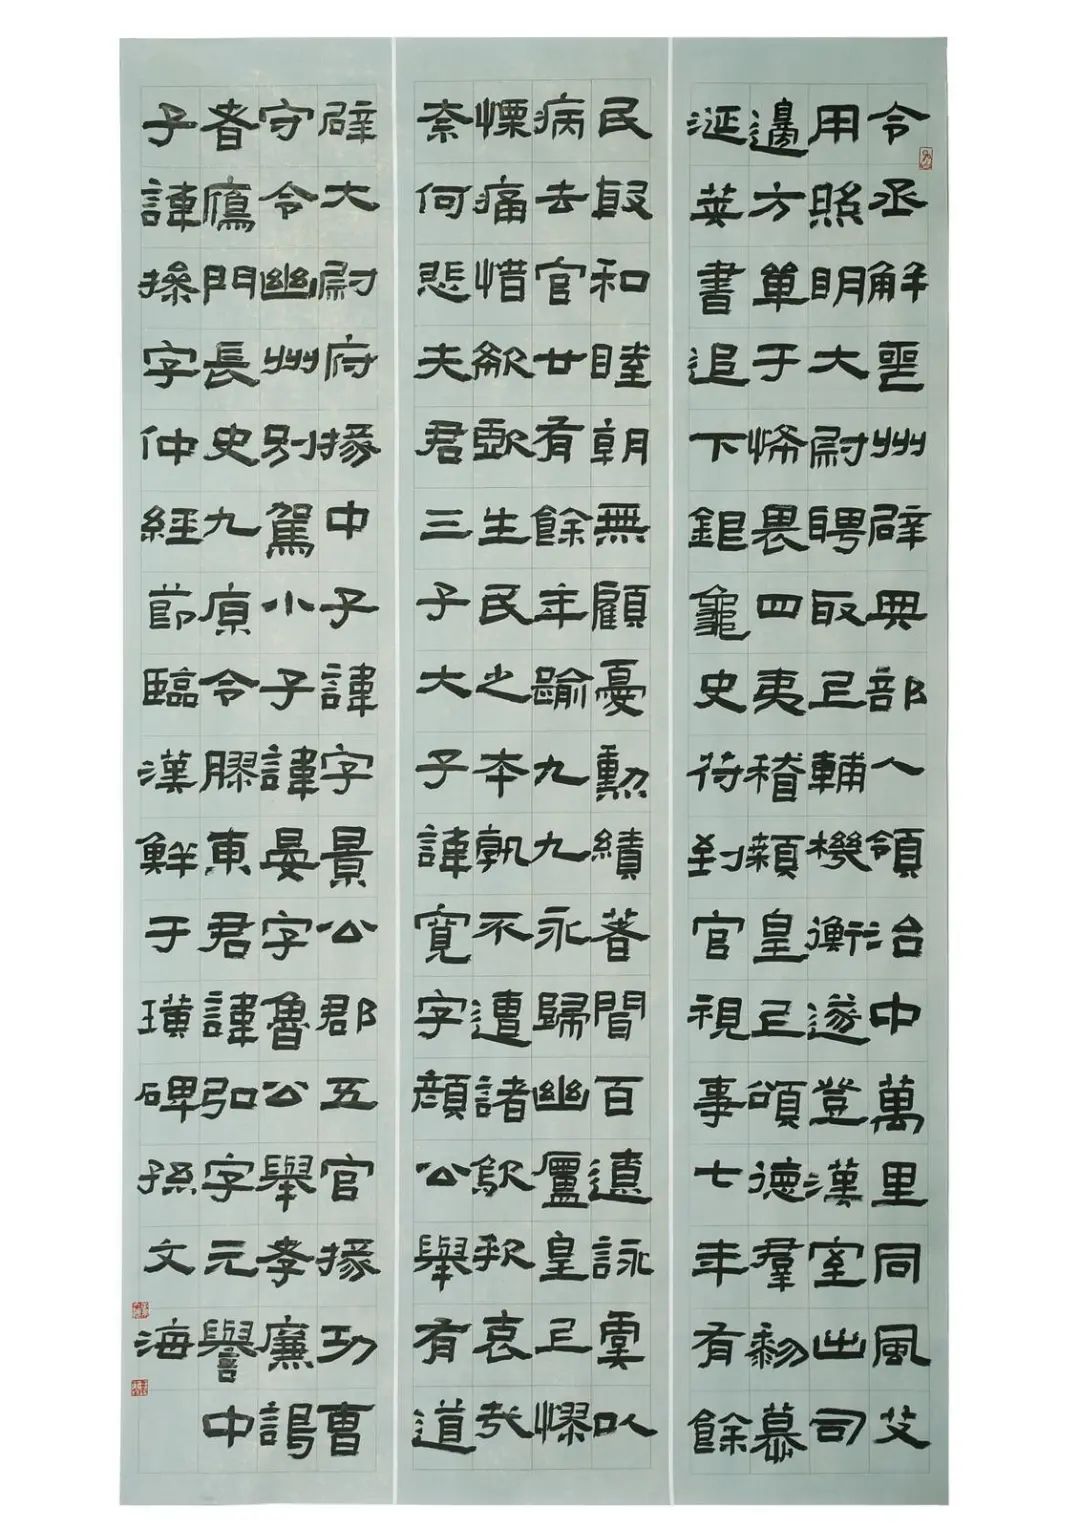 令丞解喪州辟典部入領治中萬里同風艾
用照明大尉聘取上輔機衡遂登漢室出司
邊方單于怖畏四夷稽顙皇上頌德羣黎慕
涎莢書追下銀龜史符到官視事七年有餘
民殷和睦朝無顧憂勳績著聞百遼詠虞以
病去官廿有餘年踰九九永歸幽廬皇上憀
慄痛惜欷歔生民之本孰不遭諸歍欷哀哉
柰何悲夫君三子大子諱寬字顏公舉有道
辟大尉府掾中子諱字景公郡五官掾功曹
守令幽州別駕小子諱晏字魯公舉孝廉謁
者鴈門長史九原令膠東君諱弘字元譽中
子諱操字仲經節臨漢鮮于璜碑孫文海